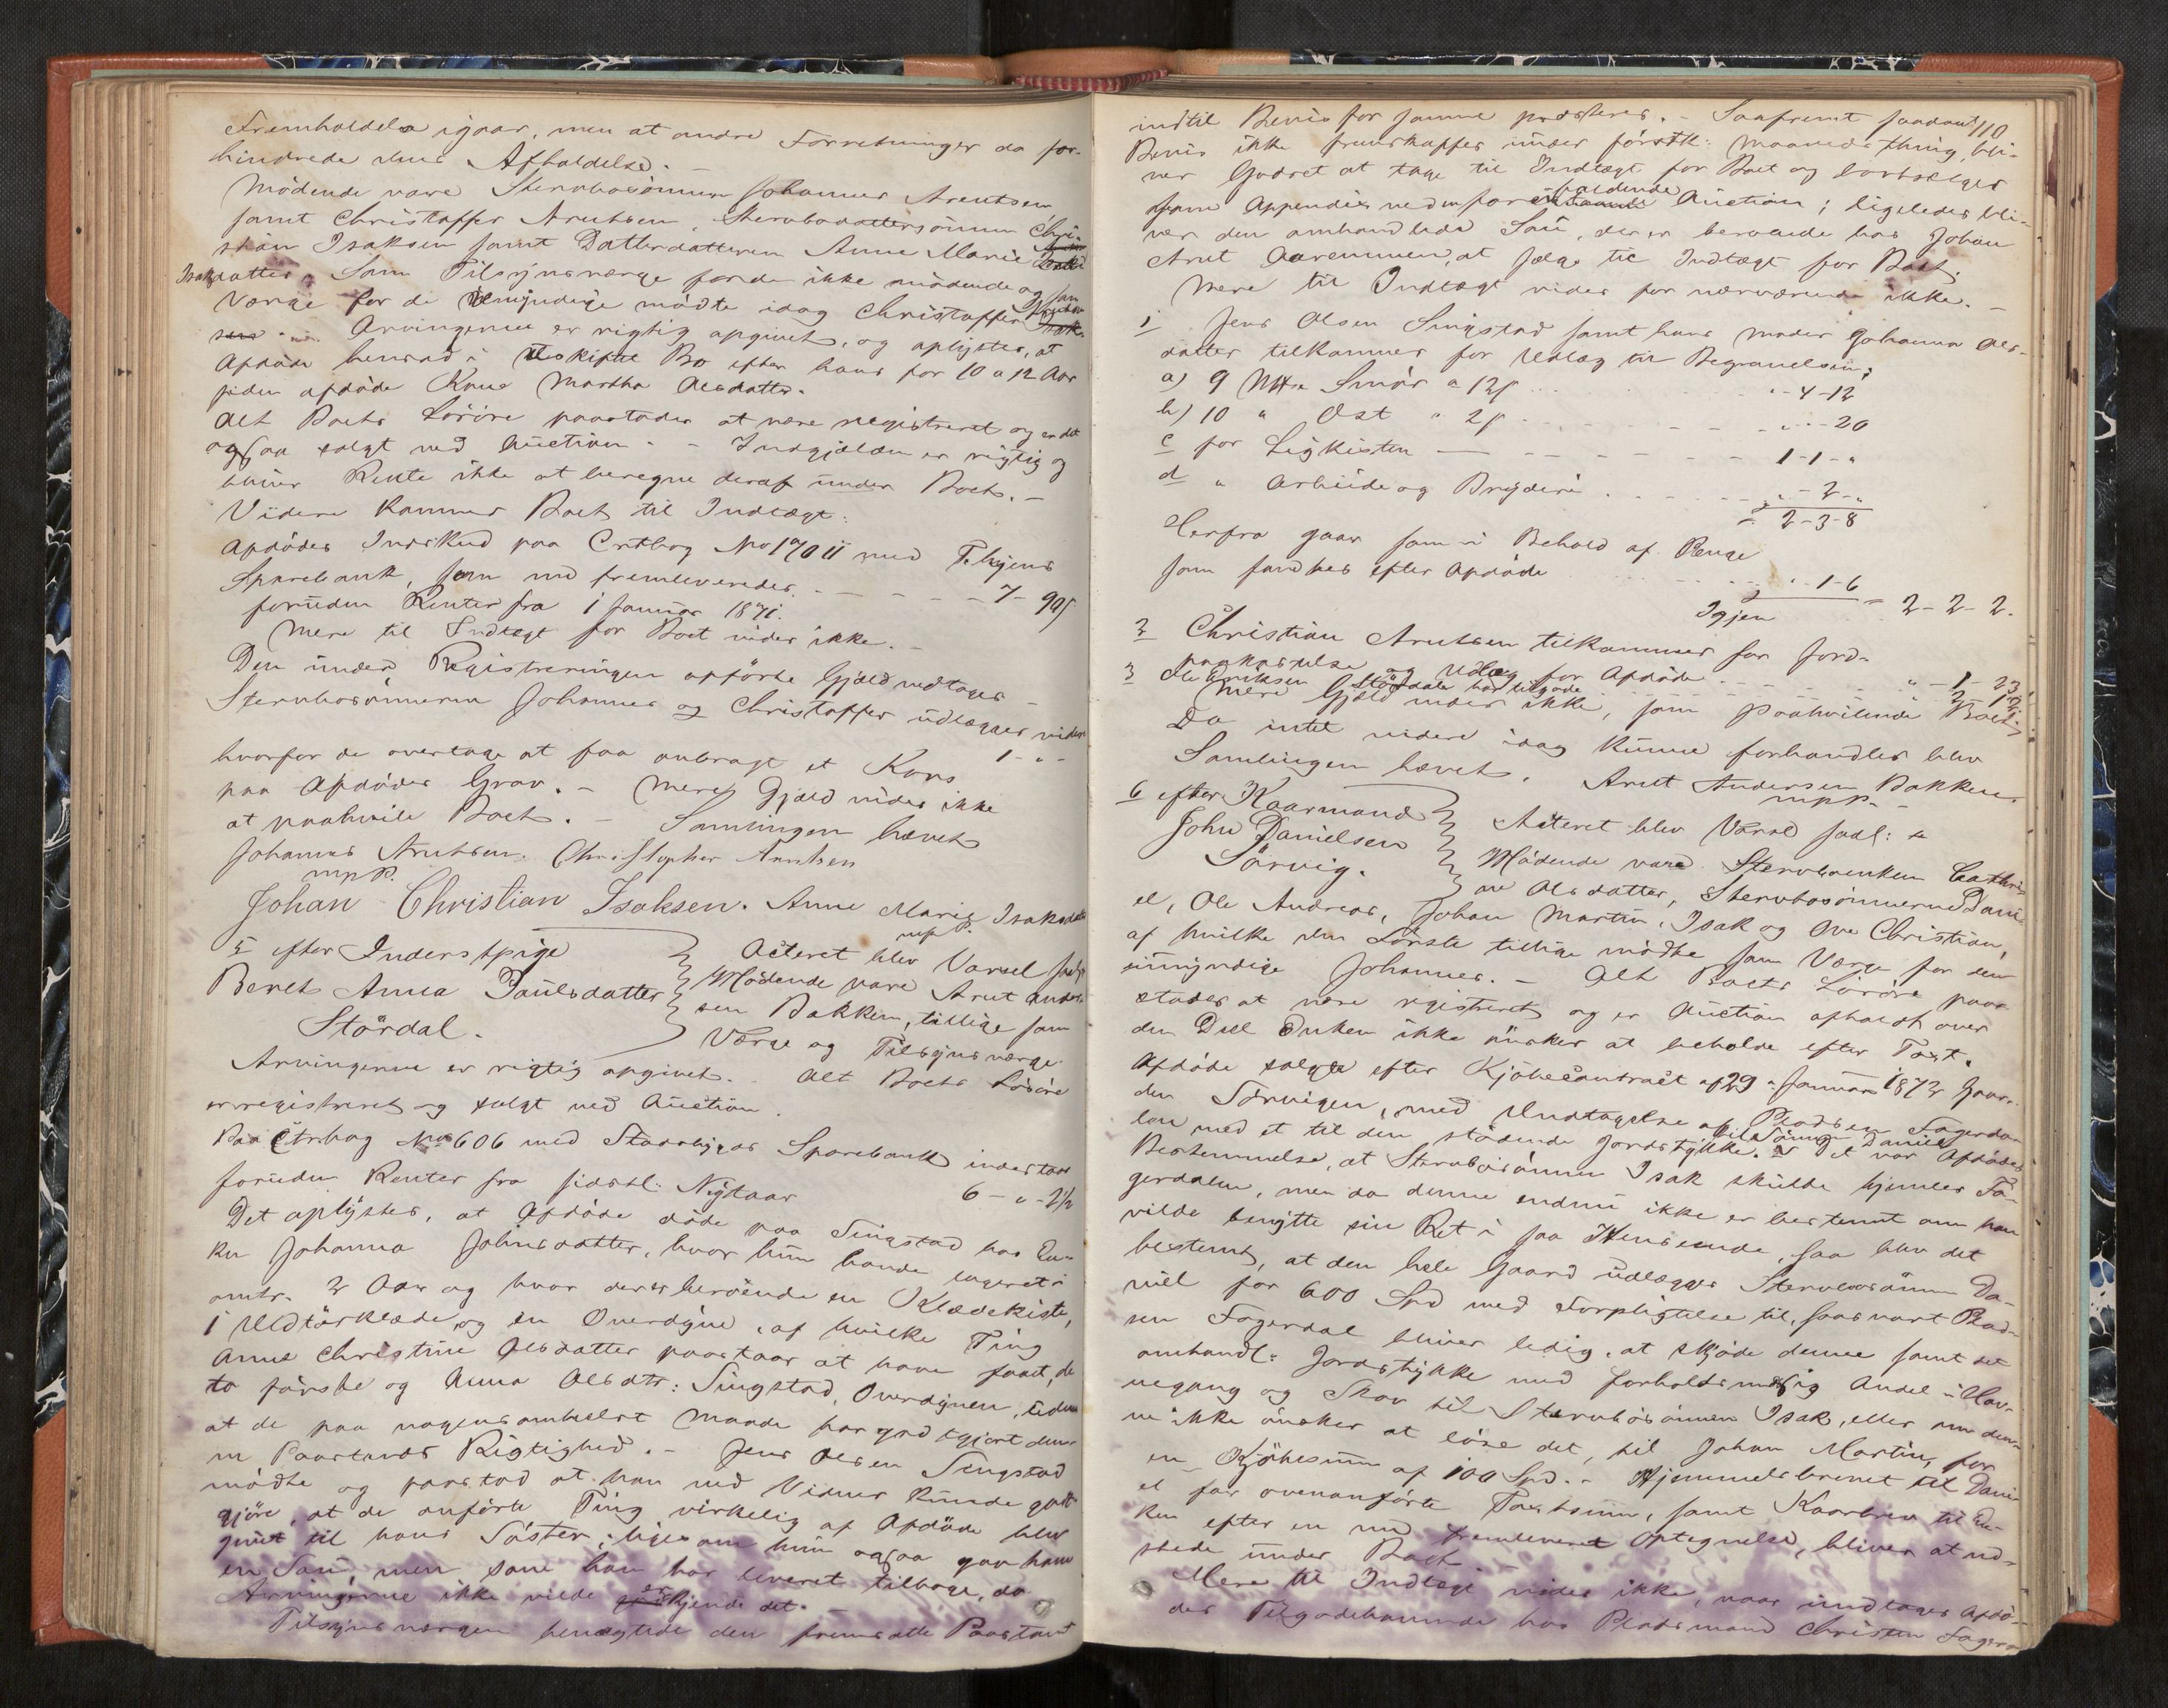 Fremholdelse igaar, men at andre Forretninger da for-
hindrede dens Afholdelse. -
Mødende vare Stervbosønnen Johannes Arentsen
samt Christoffer Arntsen, Stervbodattersønnen Chri-
stian Isaksen samt Datterdatteren Anne Marie
Isaksdatter. Som Tilsynsværge for de ikke mødende og som
Værge for de Umyndige mødte idag Christoffer
Arvingerne er rigtig opgivet, og oplystes, at
Afdøde hensad i Uskiftet Bo efter hans for 10 a 12 Aar
siden afdøde Kone Martha Olsdatter.
Alt Boets Løsøre paastodes at være registreret og er det
ogsaa solgt ved Auction. - Indgjælden er rigtig og
bliver Rente ikke at beregne deraf under Boet. -
Videre kommer Boet til Indtægt:
Afdødes Indskud paa Cntrbog No 17011 med T.hjems
Sparebank, som nu fremleveredes. - - - 7 - 99 ß
foruden Renter fra 1 Januar 1871.
Mere til Indtægt for Boet vides ikke. -
Den under Registreringen opførte Gjæld vedtages -
Stervbosønnerne Johannes og Christoffer udlægges videre
1 - " -
hvorfor de overtage at faa anbragt et Kors
paa Afdødes Grav. - Mere Gjæld vides ikke
at paahvile Boet. - Samlingen hævet
Johannes Arntsen. Christopher Arntsen
mpP.
Johan Christian Isaksen. Anne Marie Isaksdatter
mpP.
5 efter Inderstpige
Beret Anna Paulsdatter
Størdal.
Acteret blev Varsel
Mødende vare Arnt Ander-
sen Bakken, tillige som
Værge og Tilsynsværge.
Arvingerne er rigtig opgivet. Alt Boets Løsøre
er registreret og solgt ved Auction.
Paa Ctrbog No 606 med Stadsbygds Sparebank indestaar
foruden Renter fra sidstl: Nytaar 6 - " - 21
Det oplystes, at Afdøde døde paa Singstad hos En-
ken Johanna Johnsdatter, hvor hun havde logeret i
omtr. 2 Aar og hvor der er beroende en Klædekiste,
1 Uldtørklæde og en Overdyne, af hvilke Ting
Anne Christine Olsdatter paastaar at have faaet, de
to første og Anna Olsdtr: Singstad, Overdynen, uden
at de paa nogensomhelst Maade har godtgjort den-
ne Paastands Rigtighed. - Jens Olsen Singstad
mødte og paastod at han ved Vidner kunde godt-
gjøre, at de anførte Ting virkelig af Afdøde blev
givet til hans Søster, ligesom hun ogsaa gav ham
en Sau, men som han har leveret tilbage, da
Arvingerne ikke vilde erkjende det. -
Tilsynsværgen benægtede den fremsatte Paastand
110
indtil Bevis for samme præsteres. - Saafremt saadant
Bevis ikke fremskaffes inden førstk: Maanedsthing, bli-
ver Godset at tage til Indtægt for Boet og bortsælges
som Appendix ved en forefaldende Auction; ligeledes bli-
ver den omhandlede Sau, der er beroende hos Johan
Arnt Aaremmen, at sælge til Indtægt for Boet.
Mere til Indtægt vides for nærværende ikke. -
1 Jens Olsen Singstad samt hans Moder Johanna Ols-
datter tilkommer for Udlæg til Begravelsen;
a) 9 Mkr Smør a 12 ß . . . " - 4 - 12
b) 10 " Ost " 2 ß - - - " - " - 20
c for Ligkisten - - - 1 - 1 - "
d " Arbeide og Bryderi . . . " - 2 - "
2 - 3 - 8
Herfra gaar som i Behold af Penge
som fandtes efter Afdøde . . . " - 1 - 6
Igjen = 2 - 2 - 2.
2 Christian Arntsen tilkommer for Ford-
paakastelse og Udlæg for Afdøde . . . " - 1 - 23
3 Ole Eriksen Størdal har tilgode
Mere Gjæld vides ikke, som paahvilende Boet.
Da intet videre idag kunne forhandles blev
Samlingen hævet. Arnt Andersen Bakken
mpp.
6 efter Kaarmand
John Danielsen
Sørvig.
Acteret blev Varsel sædl: -
Mødende vare Stervboenken Cathri-
ne Olsdatter, Stervbosønnerne Dani-
el, Ole Andreas, Johan Martin, Isak og Ove Christian,
af hvilke den Første tillige mødte som Værge for den
umyndige Johannes. - Alt Boets Løsøre paa-
stodes at være registreret og er Auction afholdt over
den Deel Enken ikke ønsker at beholde efter Taxt.
Afdøde solgte efter Kjøbecontract af 29 Januar 1872 Gaar-
den Sørvigen, med Undtagelse af Pladsen Fagerda-
len med et til den stødende Jordstykke, til Sønnen Daniel. Det var Afdødes
Bestemmelse, at Stervbosønnen Isak skulde hjemles Fa-
gerdalen, men da denne endnu ikke er bestemt om han
vilde benytte sin Ret i saa Henseende, saa blev det
bestemt, at den hele Gaard udlægges Stervbosønnen Da-
niel for 600 Spd med Forpligtelse til, saasnart Plad-
sen Fagerdal bliver ledig, at skjøde denne samt det
omhandl: Jordstykke med forholdsmæsig Andel i Hav-
negang og Skov til Stervbosønnen Isak, eller om den-
ne ikke ønsker at løse det, til Johan Martin, for
en Kjøbesum af 100 Spd. - Hjemmelsbrevet til Dani-
el for ovenanførte Taxtsum, samt Kaarbrev til En-
ken efter en nu fremleveret Optegnelse, bliver at ud-
stede under Boet.
Mere til Indtægt vides ikke, naar undtages Afdø-
des Tilgodehavende hos Pladsmand Christen Fager-